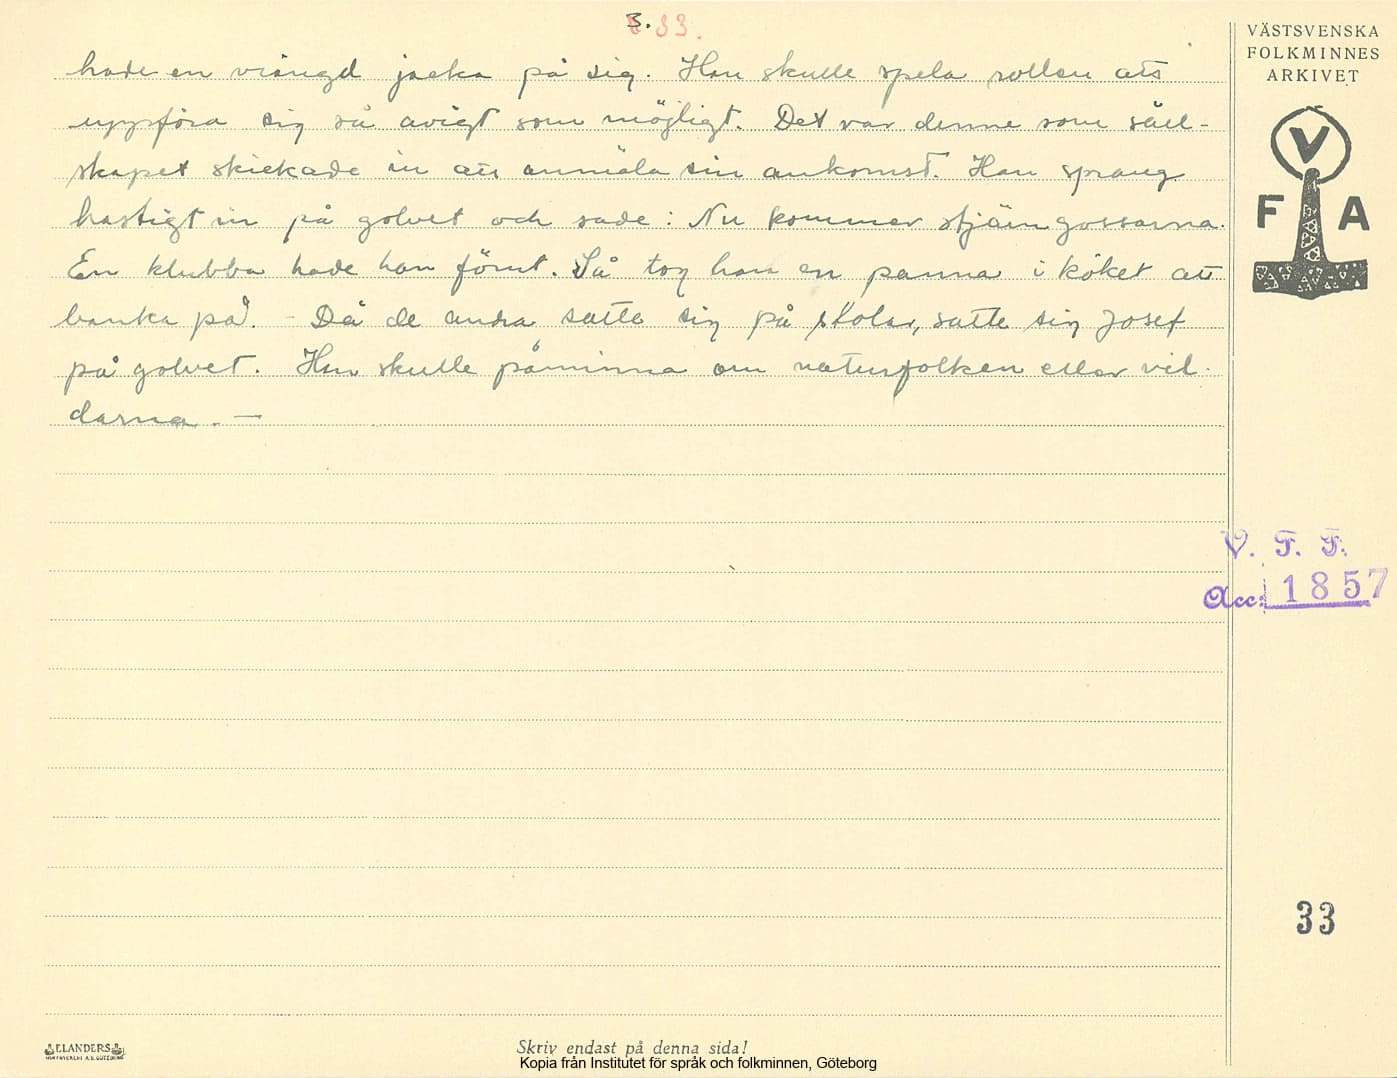 3. 33.
hade en vrängd jacka på sig. Han skulle spela rollen att
uppföra sig så avigt som möjligt. Det var denne som säll-
skapet skickade in att anmäla sin ankomst. Han sprang
hastigt in på golvet och sade: Nu kommer stjärngossarna.
En klubba hade han fömt. Så tog han en panna i köket att
banka på. - Då de andra satte sig på stolar, satte sig Josef
på golvet. Han skulle påminna om naturfolken eller vil-
darna. —
VÄSTSVENSKA
FOLKMINNES
ARKIVET
V
F A
V. F. F.
Acc: 1857
33
ELANDERS
Skriv endast på denna sida!
Kopia från Institutet för språk och folkminnen, Göteborg